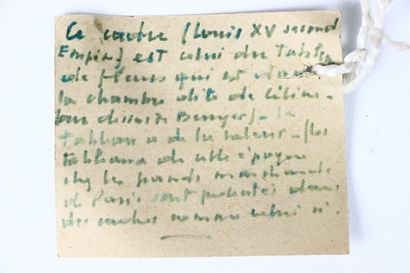 Ce cadre (Louis XV second
Empire) est celui du Tableau
de fleurs qui est dans
la chambre dite de
le
tableau a de la valeur - (les
tableaux de cette époque
chez les grands marchands
de Paris sont présentés dans
des cadres comme celui ci.